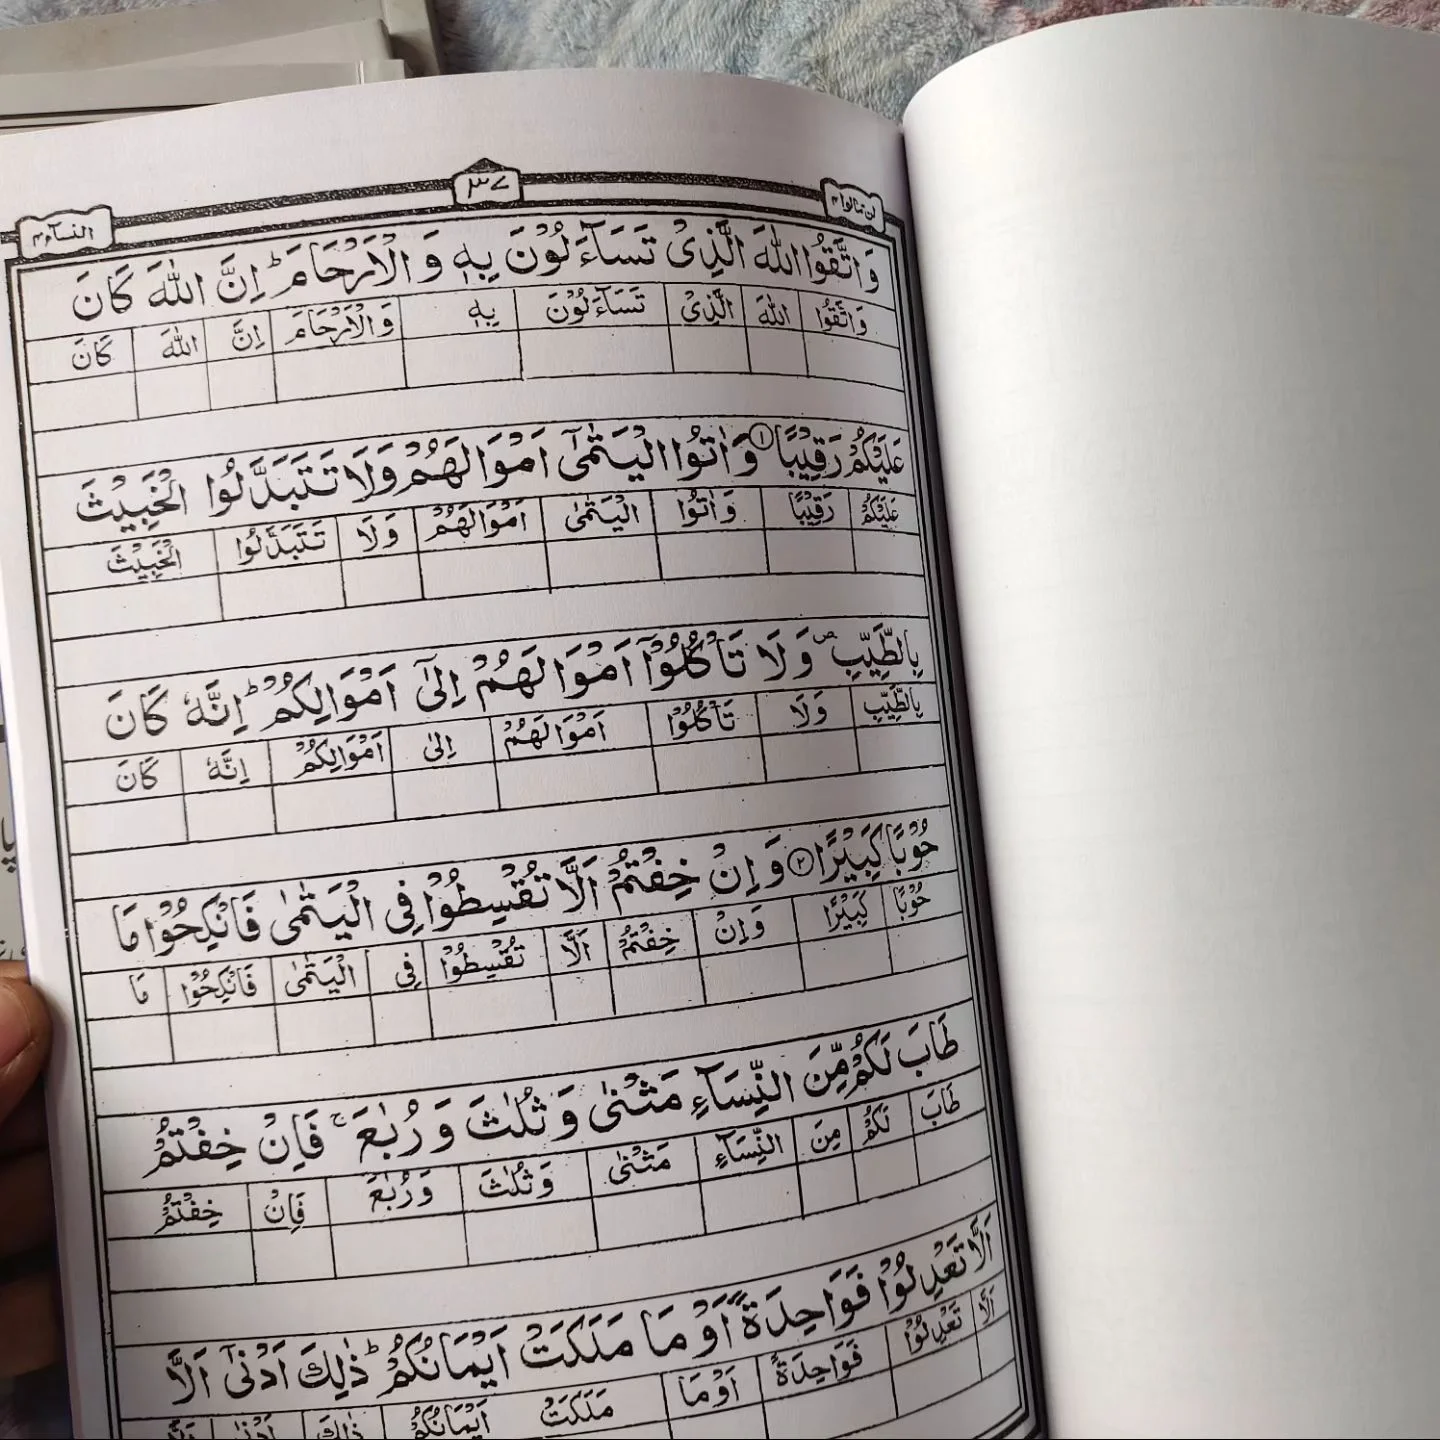 لن تنالوا ٤
٣٧
النسآء ٤
وَاتَّقُوا اللّٰهَ الَّذِیْ تَسَآءَلُوْنَ بِهٖ وَالْاَرْحَامَ ؕ اِنَّ اللّٰهَ كَانَ
وَاتَّقُوا اللّٰهَ الَّذِیْ تَسَآءَلُوْنَ بِهٖ وَالْاَرْحَامَ اِنَّ اللّٰهَ كَانَ
عَلَیْكُمْ رَقِیْبًا ① وَاٰتُوا الْیَتٰمٰۤی اَمْوَالَهُمْ وَلَا تَتَبَدَّلُوا الْخَبِیْثَ
عَلَیْكُمْ رَقِیْبًا وَاٰتُوا الْیَتٰمٰی اَمْوَالَهُمْ وَلَا تَتَبَدَّلُوا الْخَبِیْثَ
بِالطَّیِّبِ ۪ وَلَا تَاْكُلُوْۤا اَمْوَالَهُمْ اِلٰۤی اَمْوَالِكُمْ ؕ اِنَّهٗ كَانَ
بِالطَّیِّبِ وَلَا تَاْكُلُوْۤا اَمْوَالَهُمْ اِلٰی اَمْوَالِكُمْ اِنَّهٗ كَانَ
حُوْبًا كَبِیْرًا ② وَاِنْ خِفْتُمْ اَلَّا تُقْسِطُوْا فِی الْیَتٰمٰی فَانْكِحُوْا مَا
حُوْبًا كَبِیْرًا وَاِنْ خِفْتُمْ اَلَّا تُقْسِطُوْا فِی الْیَتٰمٰی فَانْكِحُوْا مَا
طَابَ لَكُمْ مِّنَ النِّسَآءِ مَثْنٰی وَثُلٰثَ وَرُبٰعَ ۚ فَاِنْ خِفْتُمْ
طَابَ لَكُمْ مِنَ النِّسَآءِ مَثْنٰی وَثُلٰثَ وَرُبٰعَ فَاِنْ خِفْتُمْ
اَلَّا تَعْدِلُوْا فَوَاحِدَةً اَوْ مَا مَلَكَتْ اَیْمَانُكُمْ ؕ ذٰلِكَ اَدْنٰۤی اَلَّا
اَلَّا تَعْدِلُوْا فَوَاحِدَةً اَوْ مَا مَلَكَتْ اَیْمَانُكُمْ ذٰلِكَ اَدْنٰی اَلَّا